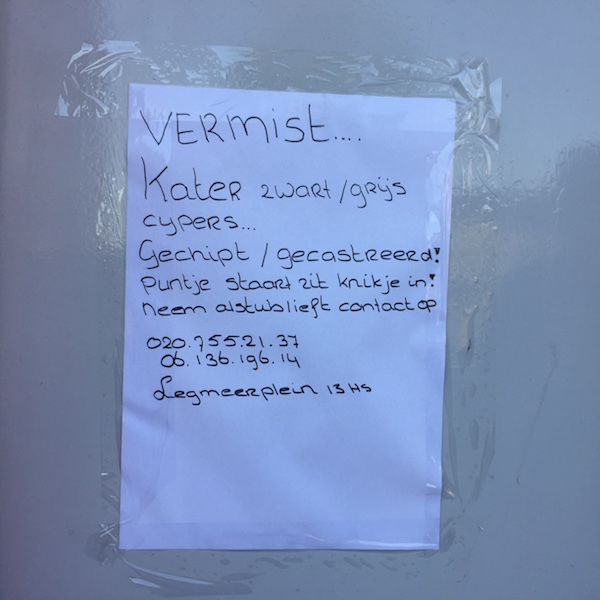 VERMIST....
Kater zwart/grijs
cypers...
Gechipt / gecastreerd!
puntje staart zit knikje in!
neem alstublieft contact op
020.755.21.37
06.136.196.14
Legmeerplein 13 HS